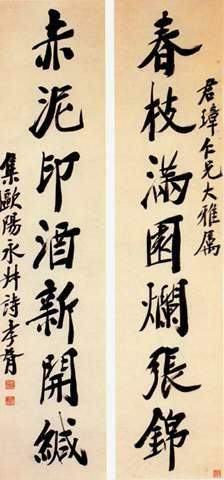 君璋仁兄大雅属
春枝滿園爛張錦
赤泥印酒新開緘
集歐陽永叔詩孝胥